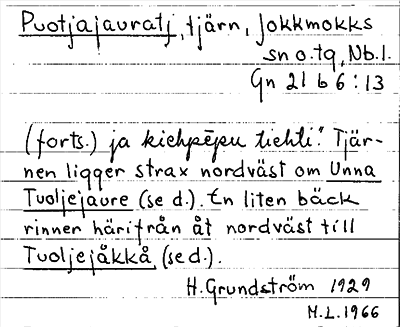 Puotjajauratj, tjärn, Jokkmokks
sn o. tg, Nb. l.
Gn 21 b 6:13
(forts.) ja kiehpēpu tiehti." Tjär-
nen ligger strax nordväst om Unna
Tuoljejaure (se d.). En liten bäck
rinner härifrån åt nordväst till
Tuoljejåkkå (se d.).
H. Grundström 1929
M.L. 1966